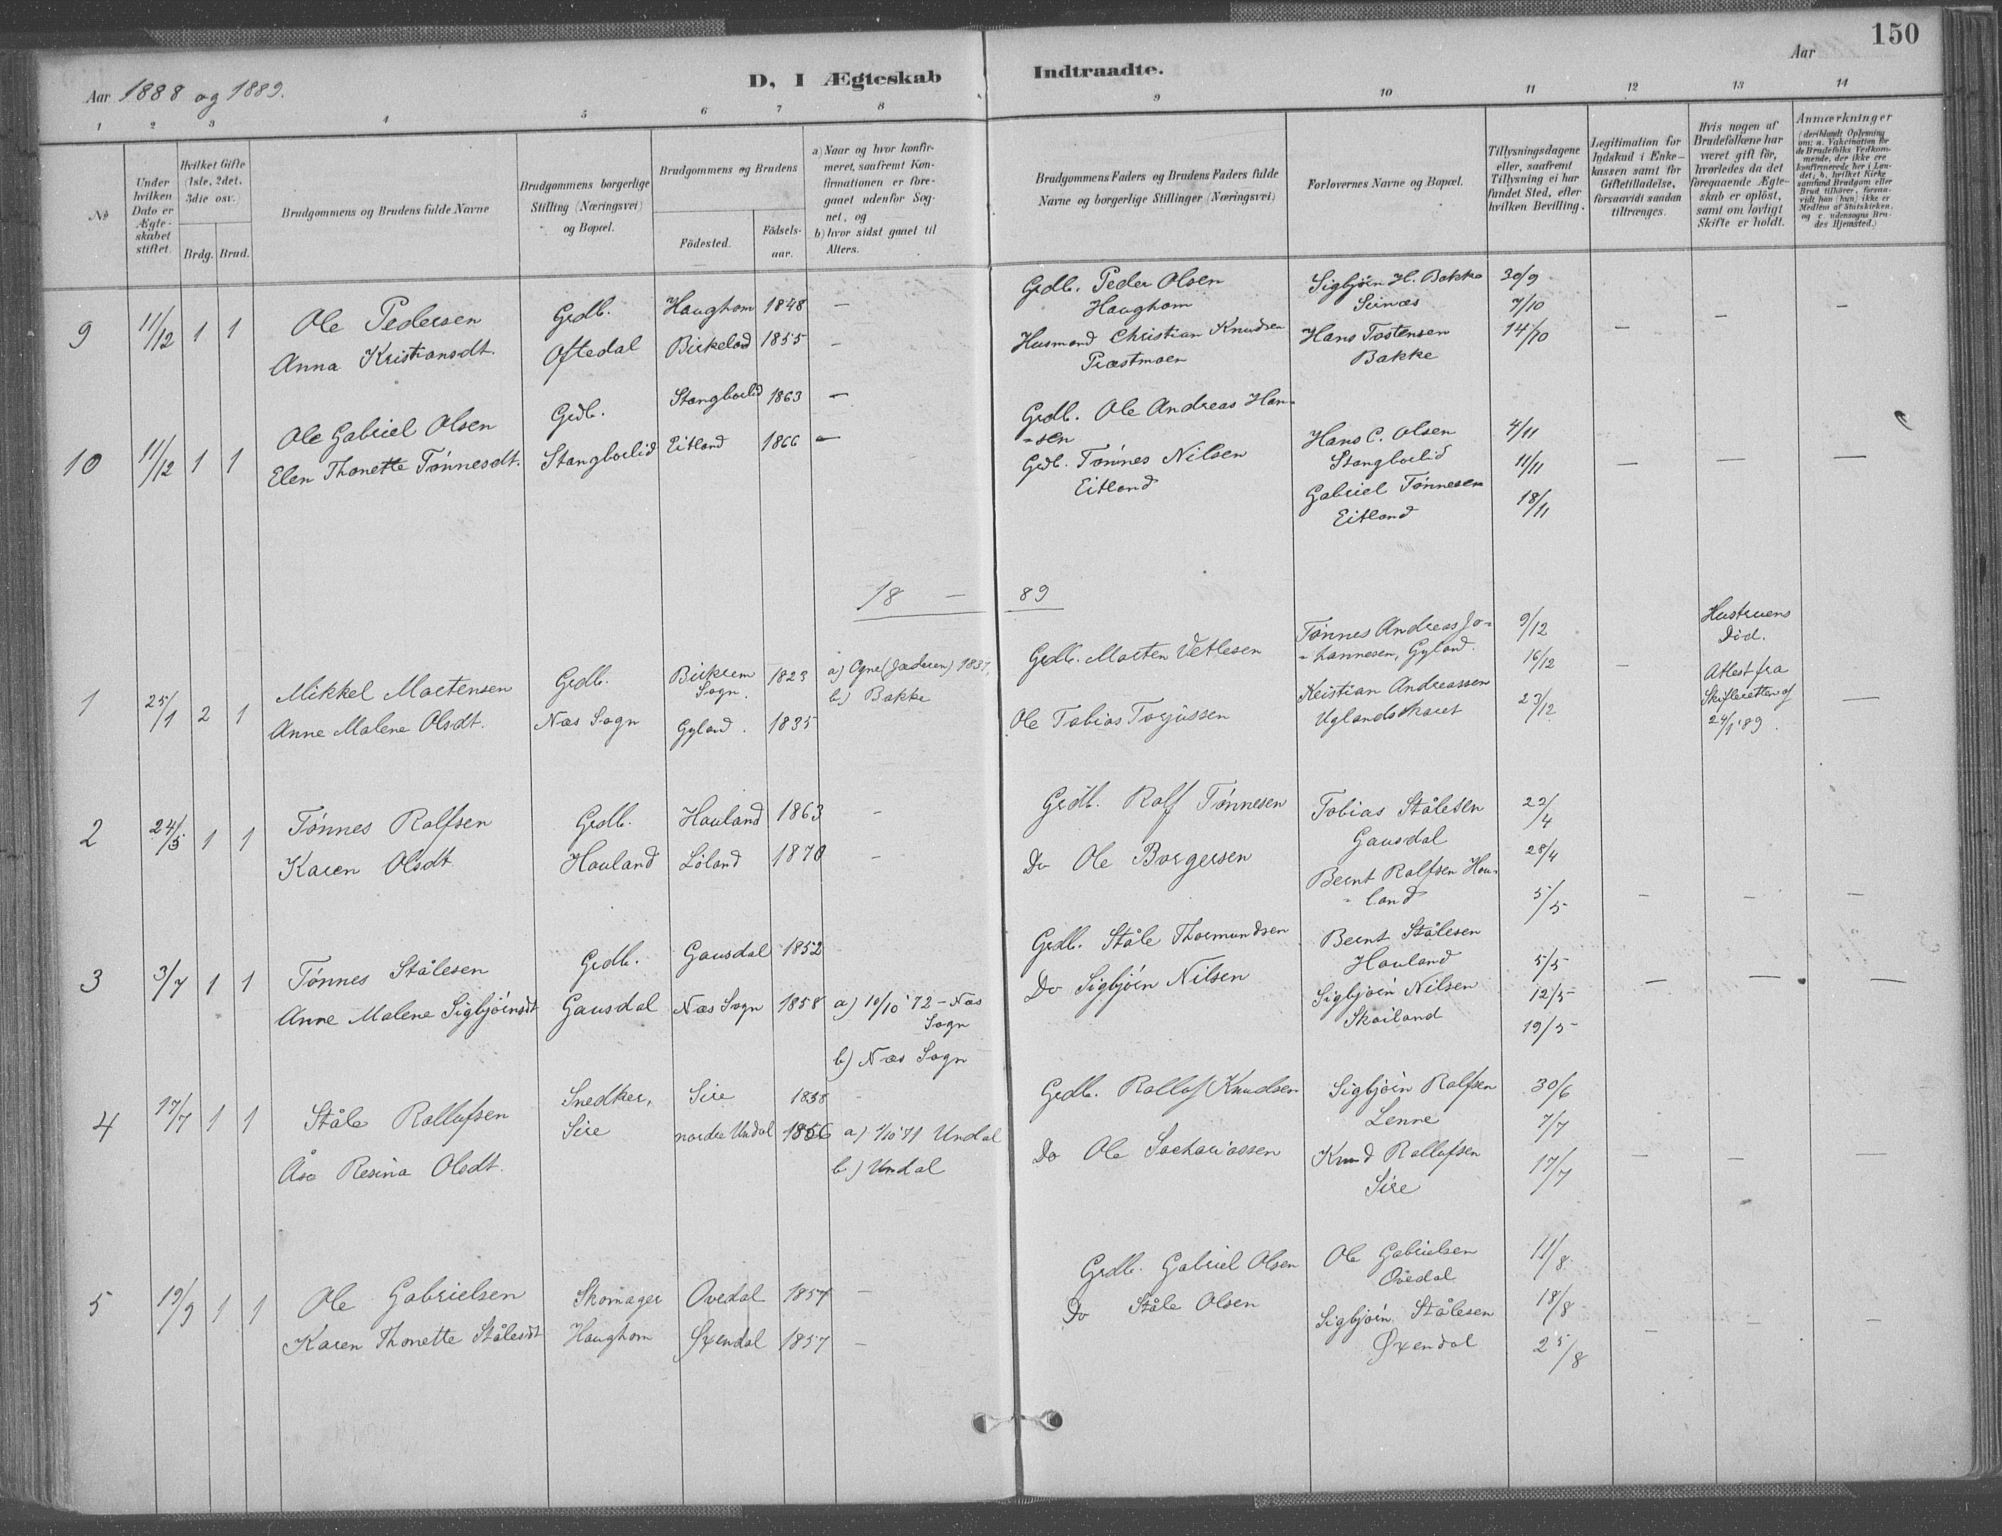 150
Aar 1888 og 1889.
D, I Ægteskab Indtraadte.
Aar
1 2 3 4 5 6 7 8 9 10 11 12 13 14
No
Under hvilken Dato er Ægteskabet stiftet.
Hvilket Gifte (1ste, 2det, 3die osv.)
Brdg. Brud.
Brudgommens og Brudens fulde Navne
Brudgommens borgerlige Stilling (Næringsvei) og Bopæl.
Brudgommens og Brudens
Födested.
Födsels-aar.
a) Naar og hvor konfirmeret, saafremt Konfirmationen er foregaaet udenfor Sognet, og
b) hvor sidst gaaet til Alters.
Brudgommens Faders og Brudens Faders fulde Navne og borgerlige Stillinger (Næringsvei)
Forlovernes Navne og Bopæl.
Tillysningsdagene eller, saafremt Tillysning ei har fundet Sted, efter hvilken Bevilling.
Legitimation for Indskud i Enkekassen samt for Giftetilladelse, forsaavidt saadan tiltrænges.
Hvis nogen af Brudefolkene har været gift för, hvorledes da det foregaaende Ægteskab er oplöst, samt om lovligt Skifte er holdt.
Anmærkninger
(deriblandt Oplysning om: a. Vakcination for de Brudefolks Vedkommende, der ikke ere konfirmerede her i Landet, b. hvilket Kirkesamfund Brudgom eller Brud tilhörer, forsaavidt han (hun) ikke er Medlem af Statskirken, og c. udensogns Brudes Hjemsted.)
9 11/12 1 1 Ole Pedersen Grdb. Haughom 1848 — Grdb. Peder Olsen Sigbjörn H. Bakke 30/9
Haughom Sirnæs 7/10
Anna Kristiansdt. Oftedal Birkeland 1855 — Husmand Christian Knudsen Hans Tostensen 14/10 — — —
Præstmoen Bakke
10 11/12 1 1 Ole Gabriel Olsen Grdb. Stangborlid 1863 — Grdb. Ole Andreas Han-
-sen Hans C. Olsen 4/11
Elen Thonette Tönnesdt. Stangborlid Eitland 1866 — Grdb. Tönnes Nilsen Stangborlid 11/11 — — —
Eitland Gabriel Tönnesen 18/11
Eitland
18 — 89
1 25/1 2 1 Mikkel Martensen Grdb. Birkrem Sogn. 1823 a) Ogne (Jæderen) 1837, Grdb. Morten Vetlesen Tönnes Andreas Jo- 9/12 Hustruens Död.
b) Bakke -hannesen, Gyland. 16/12 — Attest fra
Anne Malene Olsdt. Næs Sogn Gyland. 1835 Ole Tobias Torjussen Kristian Andreassen 23/12 Skifteretten af —
Uglandsskaret 24/1 89.
2 24/5 1 1 Tönnes Rolfsen Grdb. Houland 1863 — Grdb. Rolf Tönnesen Tobias Stålesen 22/4
Gausdal
Karen Olsdt. Houland Löland 1870 — Do Ole Borgersen Bernt Rolfsen Hou- 28/4
-land 5/5 — — —
3 3/7 1 1 Tönnes Stålesen Grdb. Gausdal 1852 — Grdb. Ståle Thormundsen Bernt Stålesen
Houland 5/5
Anne Malene Sigbjörnsdt Gausdal Næs Sogn 1858 a) 10/10 '72 – Næs Sogn Do Sigbjörn Nilsen Sigbjörn Nilsen 12/5 — — —
b) Næs Sogn Skailand 19/5
4 17/7 1 1 Ståle Rollufsen Snedker, Sire 1858 — Grdb. Rolluf Knudsen Sigbjörn Rolfsen 30/6
Sire nordre Undal 1856 a) 1/10 '71 Undal Lenne 7/7
Åse Resina Olsdt. b.) Undal Do Ole Sachariassen Knud Rollufsen 17/7 — — —
Sire
5 19/9 1 1 Ole Gabrielsen Skomager Ovedal 1857 — Grdb. Gabriel Olsen Ole Gabrielsen 11/8
Ovedal
Karen Thonette Stålesdt Haughom Øxendal 1857 — Do Ståle Olsen Sigbjörn Stålesen 18/8 — — —
Øxendal 25/8